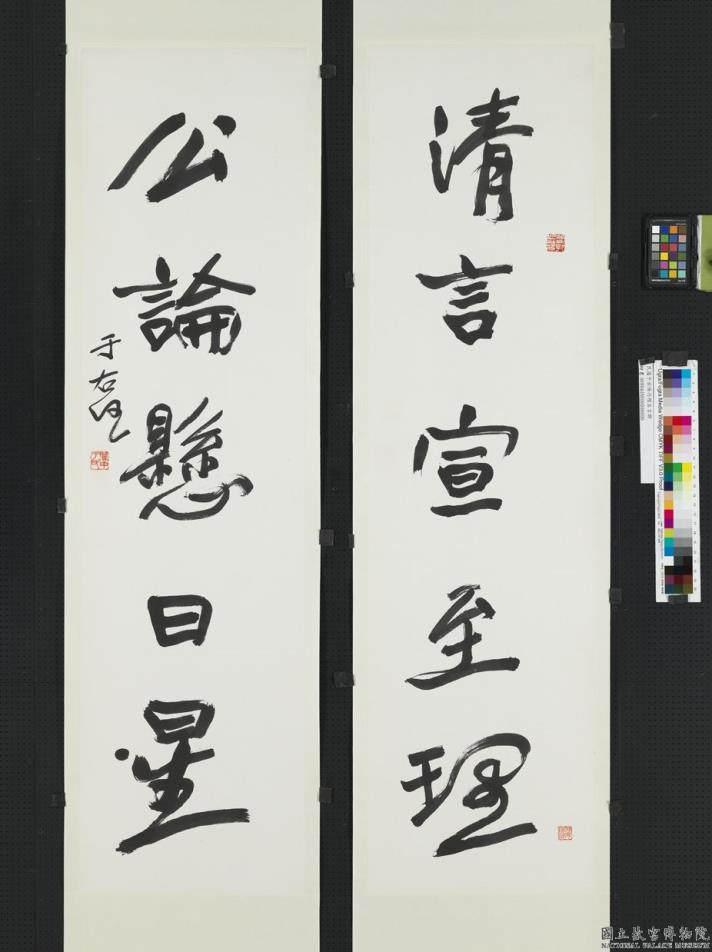 清言宣至理
公論懸日星
于右任
國立故宮博物院
NATIONAL PALACE MUSEUM